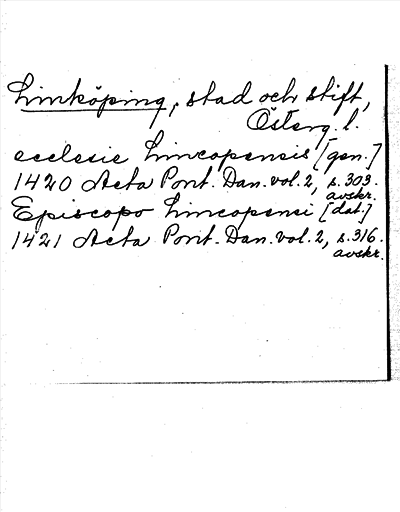 Linköping, stad och stift,
Österg. l.
ecclesie Lincopensis [gen.]
1420 Acta Pont. Dan. vol. 2, s. 303.
avskr.
Episcopo Lincopensi [dat.]
1421 Acta Pont. Dan. vol. 2, s. 316.
avskr.